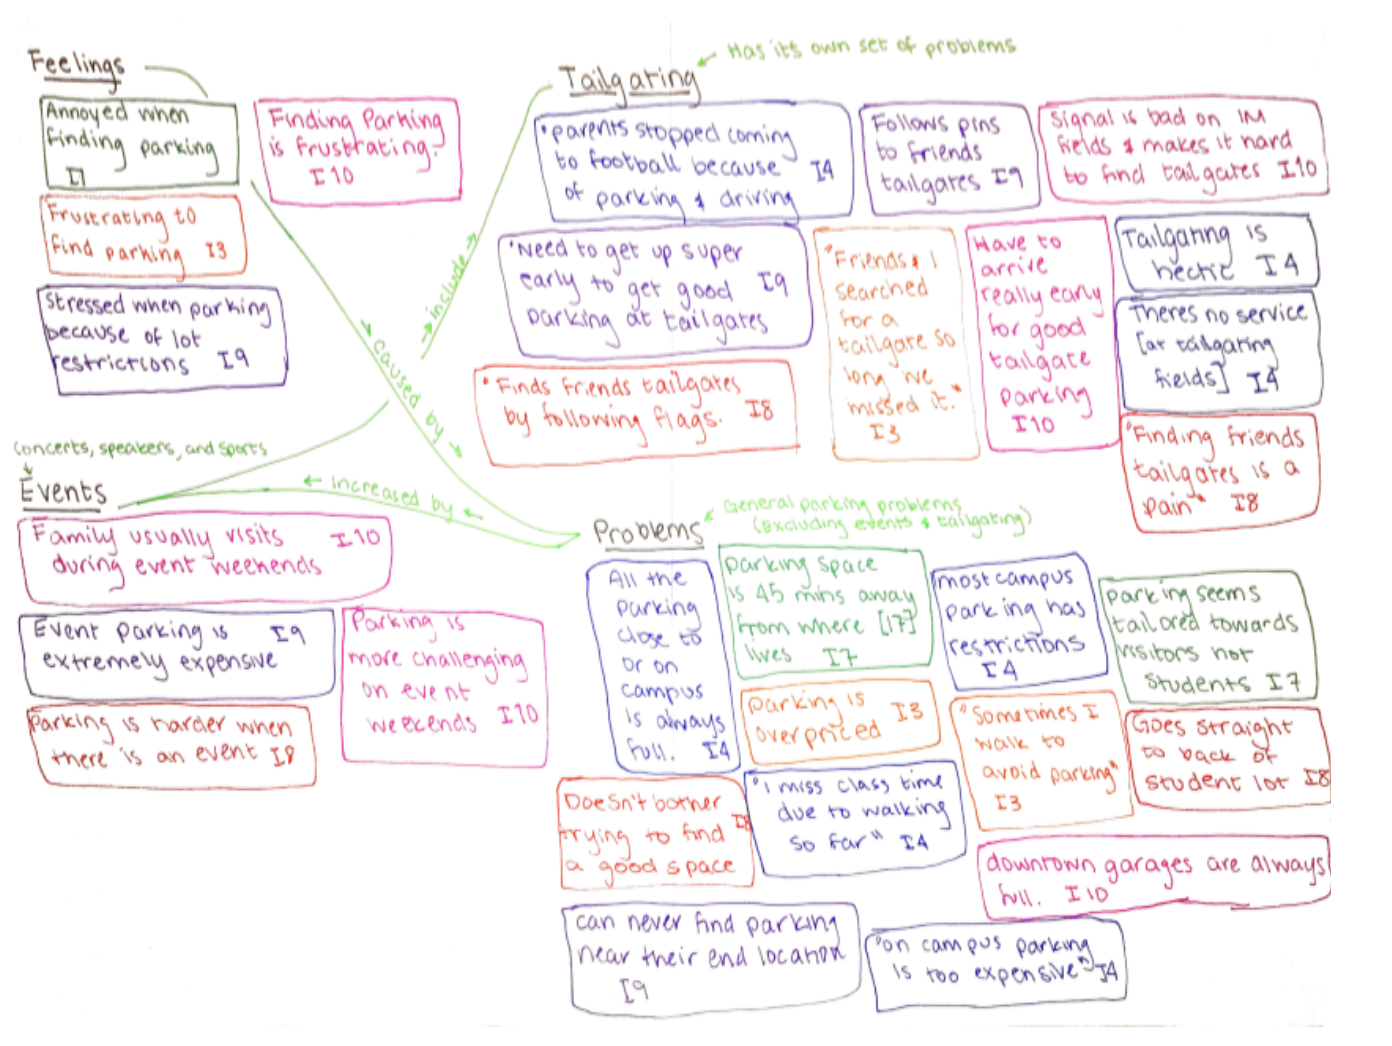 Feelings
Annoyed when
finding parking
I7
Finding Parking
is frustrating.
I10
Frustrating to
find parking I3
Stressed when parking
because of lot
restrictions I9
caused by
include
increased by
Has it's own set of problems
Tailgating
"parents stopped coming
to football because I4
of parking & driving
Follows pins
to friends
tailgates I9
Signal is bad on IM
fields & makes it hard
to find tailgates I10
"Need to get up super
early to get good I9
parking at tailgates
"Friends & I
searched
for a
tailgate so
long we
missed it."
I3
Have to
arrive
really early
for good
tailgate
parking
I10
Tailgating is
hectic I4
Theres no service
[at tailgating
fields] I4
"Finds friends tailgates
by following flags. I8
"Finding friends
tailgates is a
pain" I8
Concerts, speakers, and sports
Events
Family usually visits I10
during event weekends
Event parking is I9
extremely expensive
Parking is
more challenging
on event
weekends I10
Parking is harder when
there is an event I8
General parking problems
(Excluding events & tailgating)
Problems
All the
parking
close to
or on
campus
is always
full. I4
parking space
is 45 mins away
from where [I7]
lives I7
most campus
parking has
restrictions
I4
parking seems
tailored towards
visitors not
students I7
parking is I3
overpriced
"Sometimes I
walk to
avoid parking"
I3
Goes straight
to back of
student lot I8
Doesn't bother
trying to find I8
a good space
"I miss class time
due to walking
so far" I4
downtown garages are always
full. I10
can never find parking
near their end location
I9
"on campus parking
is too expensive" I4